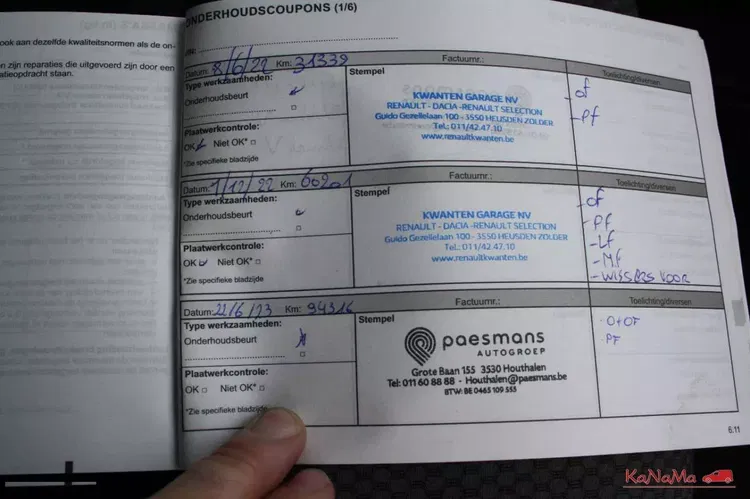 ook aan dezelfde kwaliteitsnormen als de on-
n zijn reparaties die uitgevoerd zijn door een
atieopdracht staan.
ONDERHOUDSCOUPONS (1/6)
VIN:
Datum: 8/6/22 Km: 31339 Factuurnr.:
Type werkzaamheden:
Onderhoudsbeurt
Plaatwerkcontrole:
OK Niet OK*
*Zie specifieke bladzijde
Stempel
KWANTEN GARAGE NV
RENAULT - DACIA - RENAULT SELECTION
Guido Gezellelaan 100 - 3550 HEUSDEN ZOLDER
Tel.: 011/42.47.10
www.renaultkwanten.be
Toelichting/diversen
- of
- Pf
Datum: 1/12/22 Km: 60201 Factuurnr.:
Type werkzaamheden:
Onderhoudsbeurt
Plaatwerkcontrole:
OK Niet OK*
*Zie specifieke bladzijde
Stempel
KWANTEN GARAGE NV
RENAULT - DACIA - RENAULT SELECTION
Guido Gezellelaan 100 - 3550 HEUSDEN ZOLDER
Tel.: 011/42.47.10
www.renaultkwanten.be
Toelichting/diversen
- of
- Pf
- Lf
- Mf
- WISSERS VOOR
Datum: 22/6/23 Km: 94316 Factuurnr.:
Type werkzaamheden:
Onderhoudsbeurt
Plaatwerkcontrole:
OK Niet OK*
*Zie specifieke bladzijde
Stempel
paesmans
AUTOGROEP
Grote Baan 155 3530 Houthalen
Tel: 011 60 88 88 - Houthalen@paesmans.be
BTW: BE 0465 109 555
Toelichting/diversen
O+OF
PF
6.11
KaNaMa